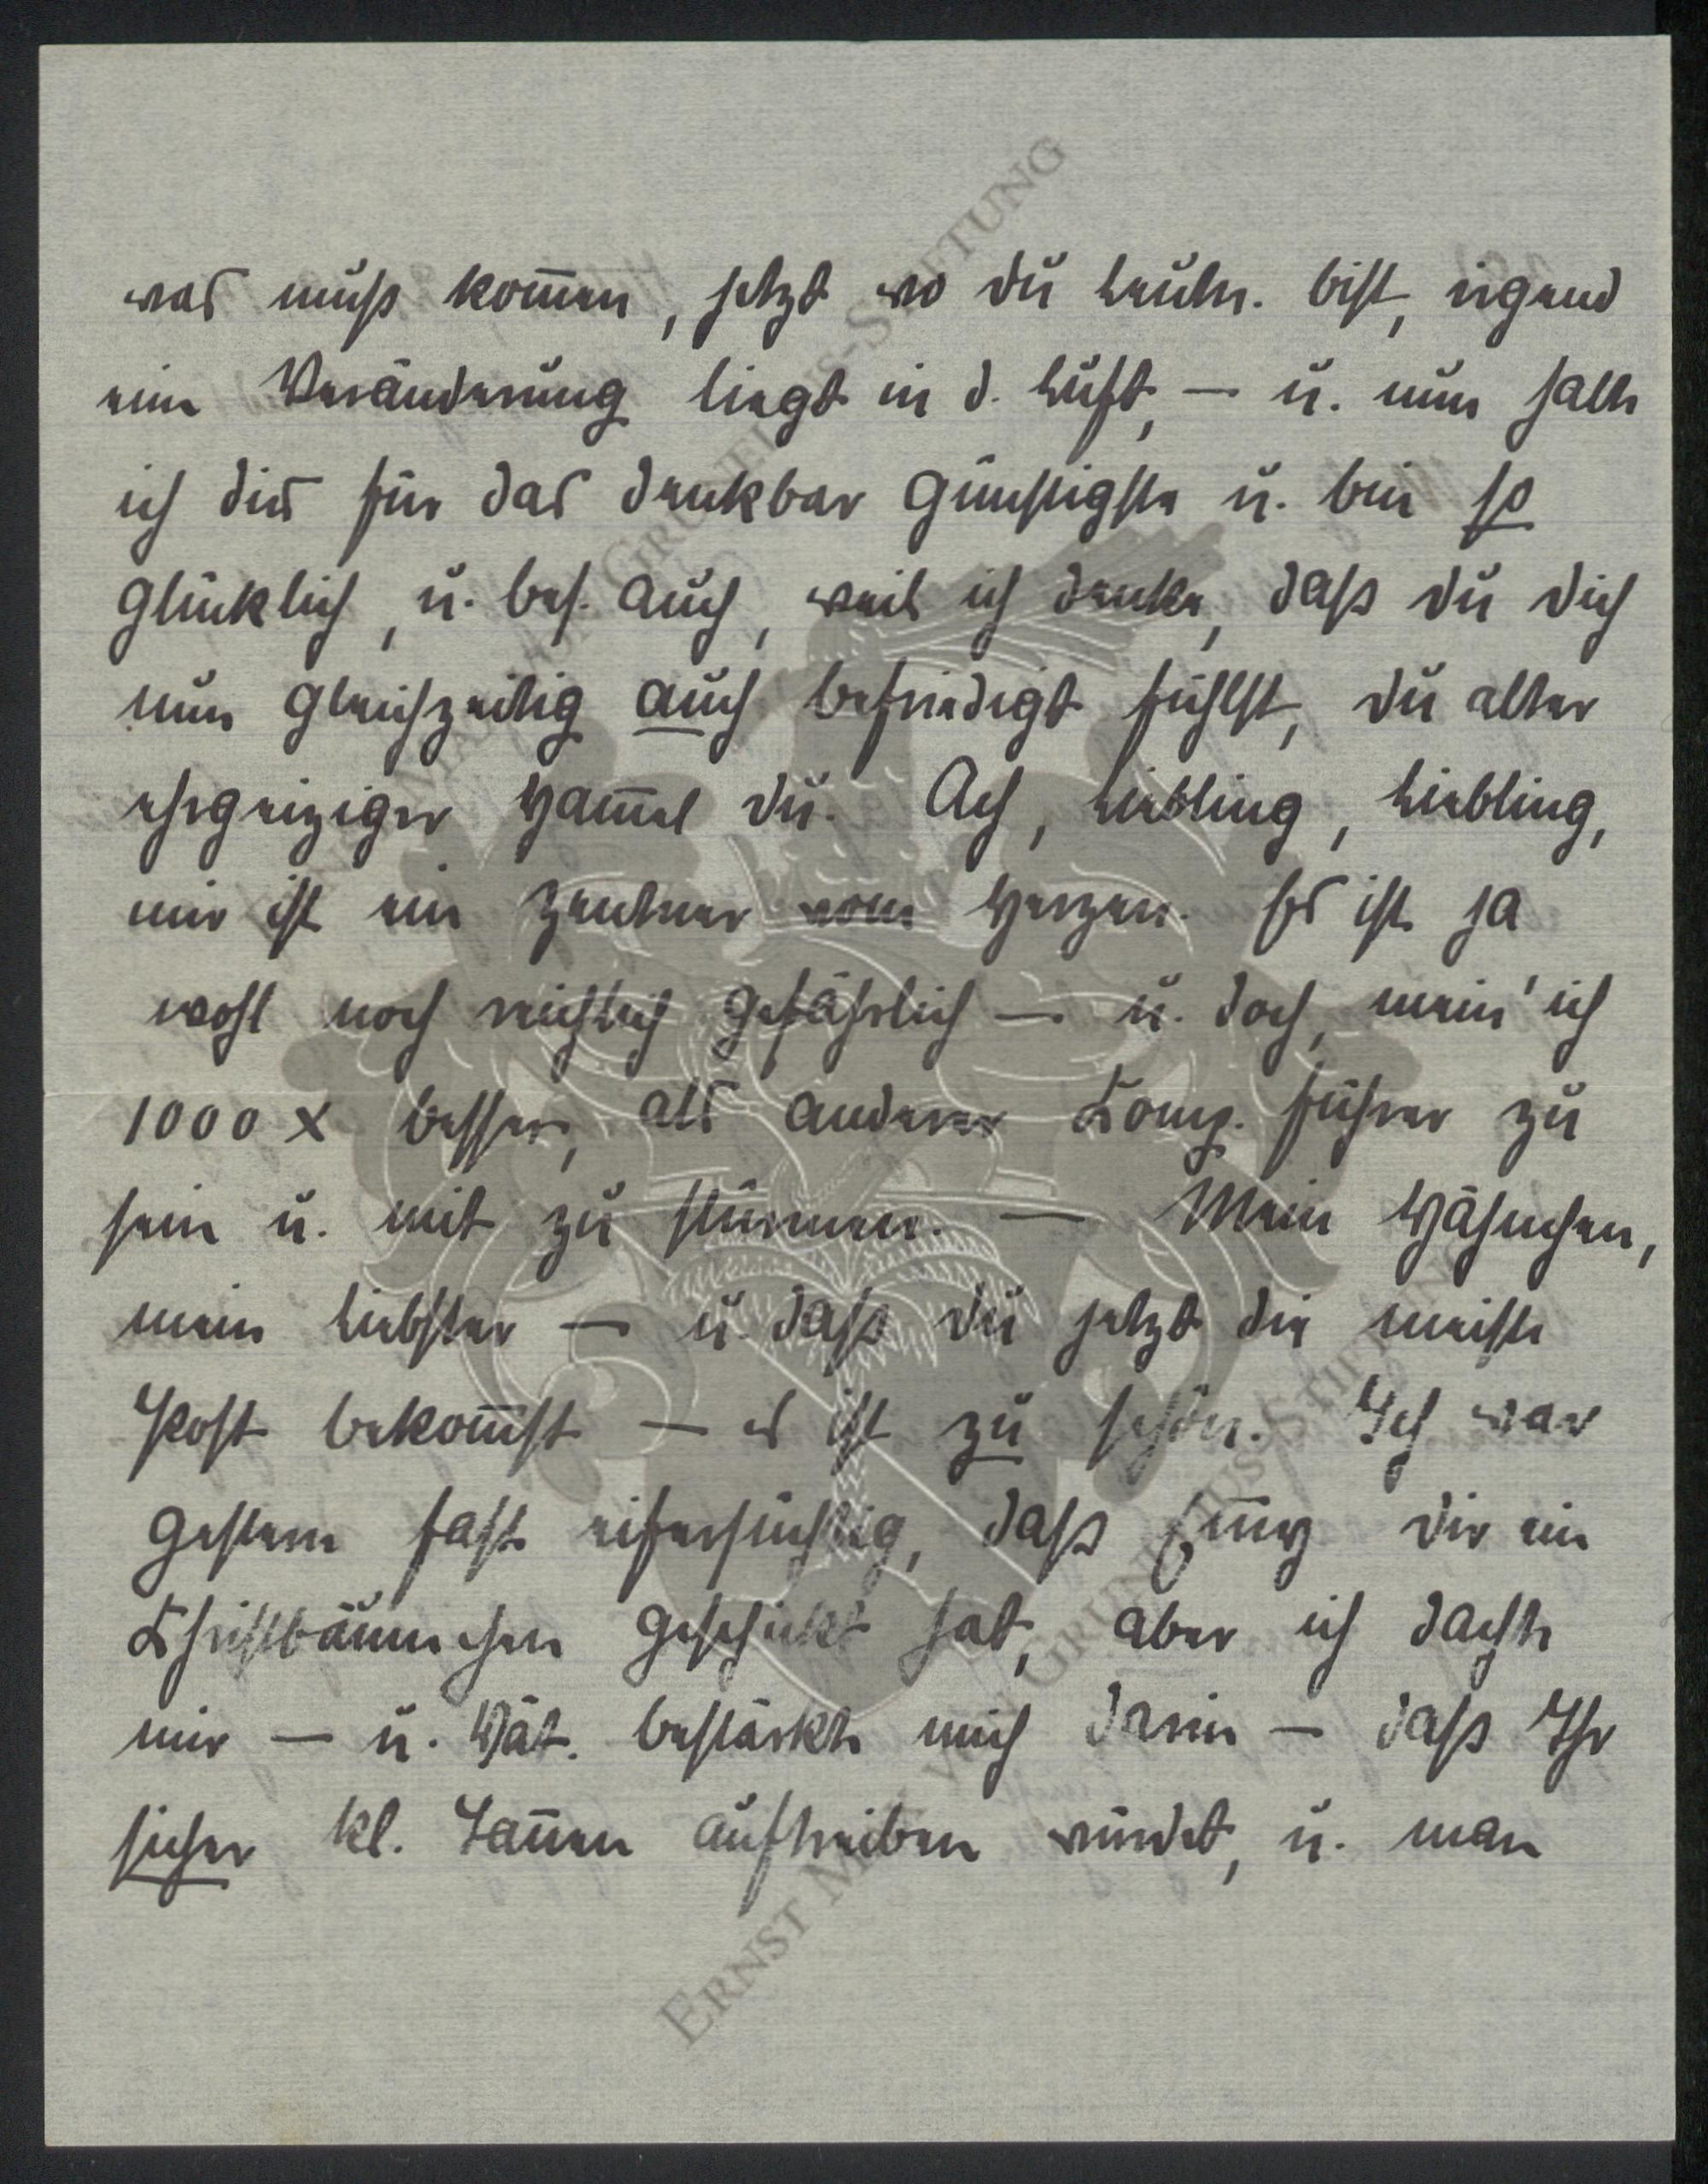 was muß kom̄en, jetzt wo du Leutn. bist, irgend
eine Veränderung liegt in d. Luft, — u. nun halte
ich dies für das denkbar Günstigste u. bin so
glücklich, u. bes. auch, weil ich denke, daß du dich
nun gleichzeitig auch befriedigt fühlst, du alter
ehrgeiziger Ham̄el du. Ach, Liebling, Liebling,
mir ist ein Zentner vom Herzen. Es ist ja
wohl noch reichlich gefährlich — u. doch, mein' ich
1000 x besser, als anderer Komp. führer zu
sein u. mit zu stürmen. — Mein Hähnchen,
mein Liebster — u. daß du jetzt die meiste
Post bekom̄st — es ist zu schön. Ich war
gestern fast eifersüchtig, daß Em̄y dir ein
Christbäumchen geschickt hat, aber ich dachte
mir — u. Vät. bestärkte mich darin — daß Ihr
sicher kl. Tan̄en auftreiben würdet, u. man
ERNST MAGNUS GRUNELIUS-STIFTUNG
ERNST MAX VON GRUNELIUS-STIFTUNG